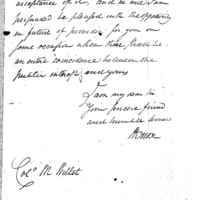 acceptance of it, and he will I am
persuaded be pleased with the opportunity
in future of providing for you on
some occasion when there shall be
an entire coincidence between the
Public interest and yours
I am my dear sir
Your sincere friend
and humble servt
H Knox
Colo M Willet